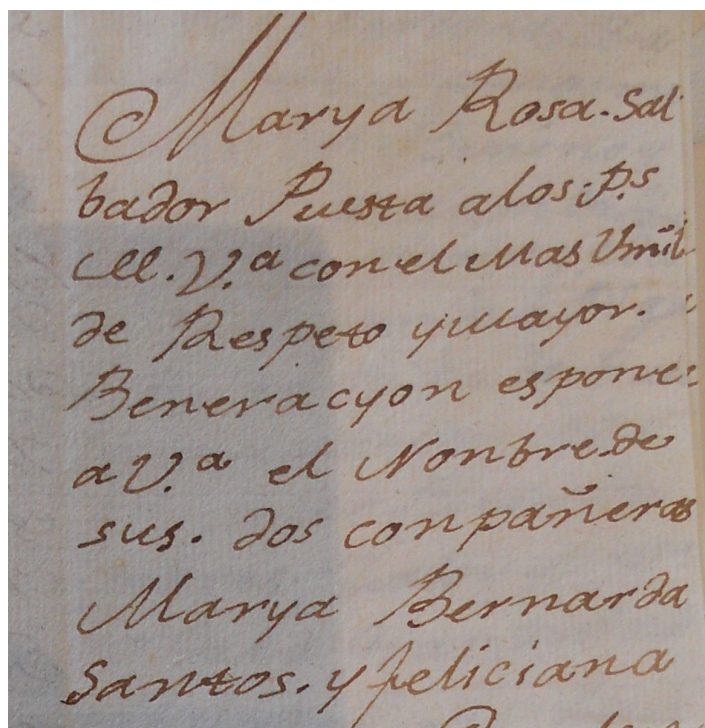 Marya Rosa. Sal
bador Puesta alos; P.s
M. V.a con el Mas Vmil
de Respeto y mayor.
Beneracyon espone:
a V.a el Nonbre. de
sus. dos conpañeras
Marya Bernarda
Santos. y feliciana